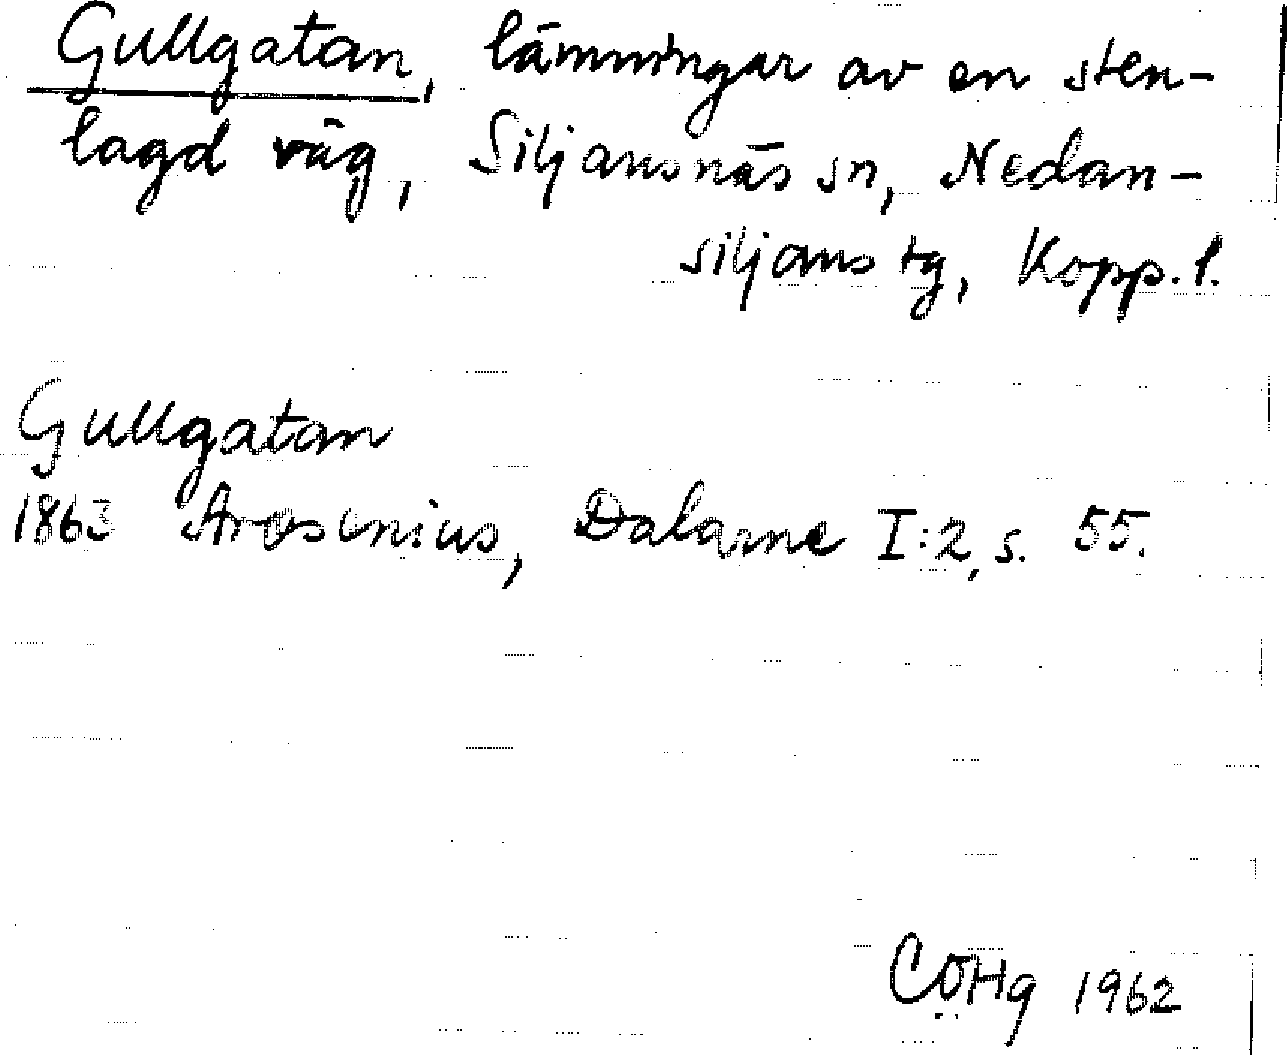 Gullgatan, lämningar av en sten-
lagd väg, Siljansnäs sn, Nedan-
siljans tg, Kopp. l.
Gullgatan
1863 Arosenius, Dalarne I:2, s. 55.
CÖHg 1962